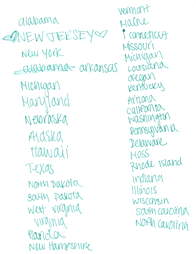 alabama
NEW JERSEY
New York
alabama arkansas
Michigan
Maryland
Nebraska
Alaska
Hawaii
Texas
North Dakota
South Dakota
West Virginia
Virginia
Florida
New Hampshire
Vermont
Maine
Connecticut
Missouri
Michigan
Louisiana
Oregon
Kentucky
Arizona
California
Washington
Pennsylvania
Delaware
Mass
Rhode Island
Indiana
Illinois
Wisconsin
South Carolina
North Carolina